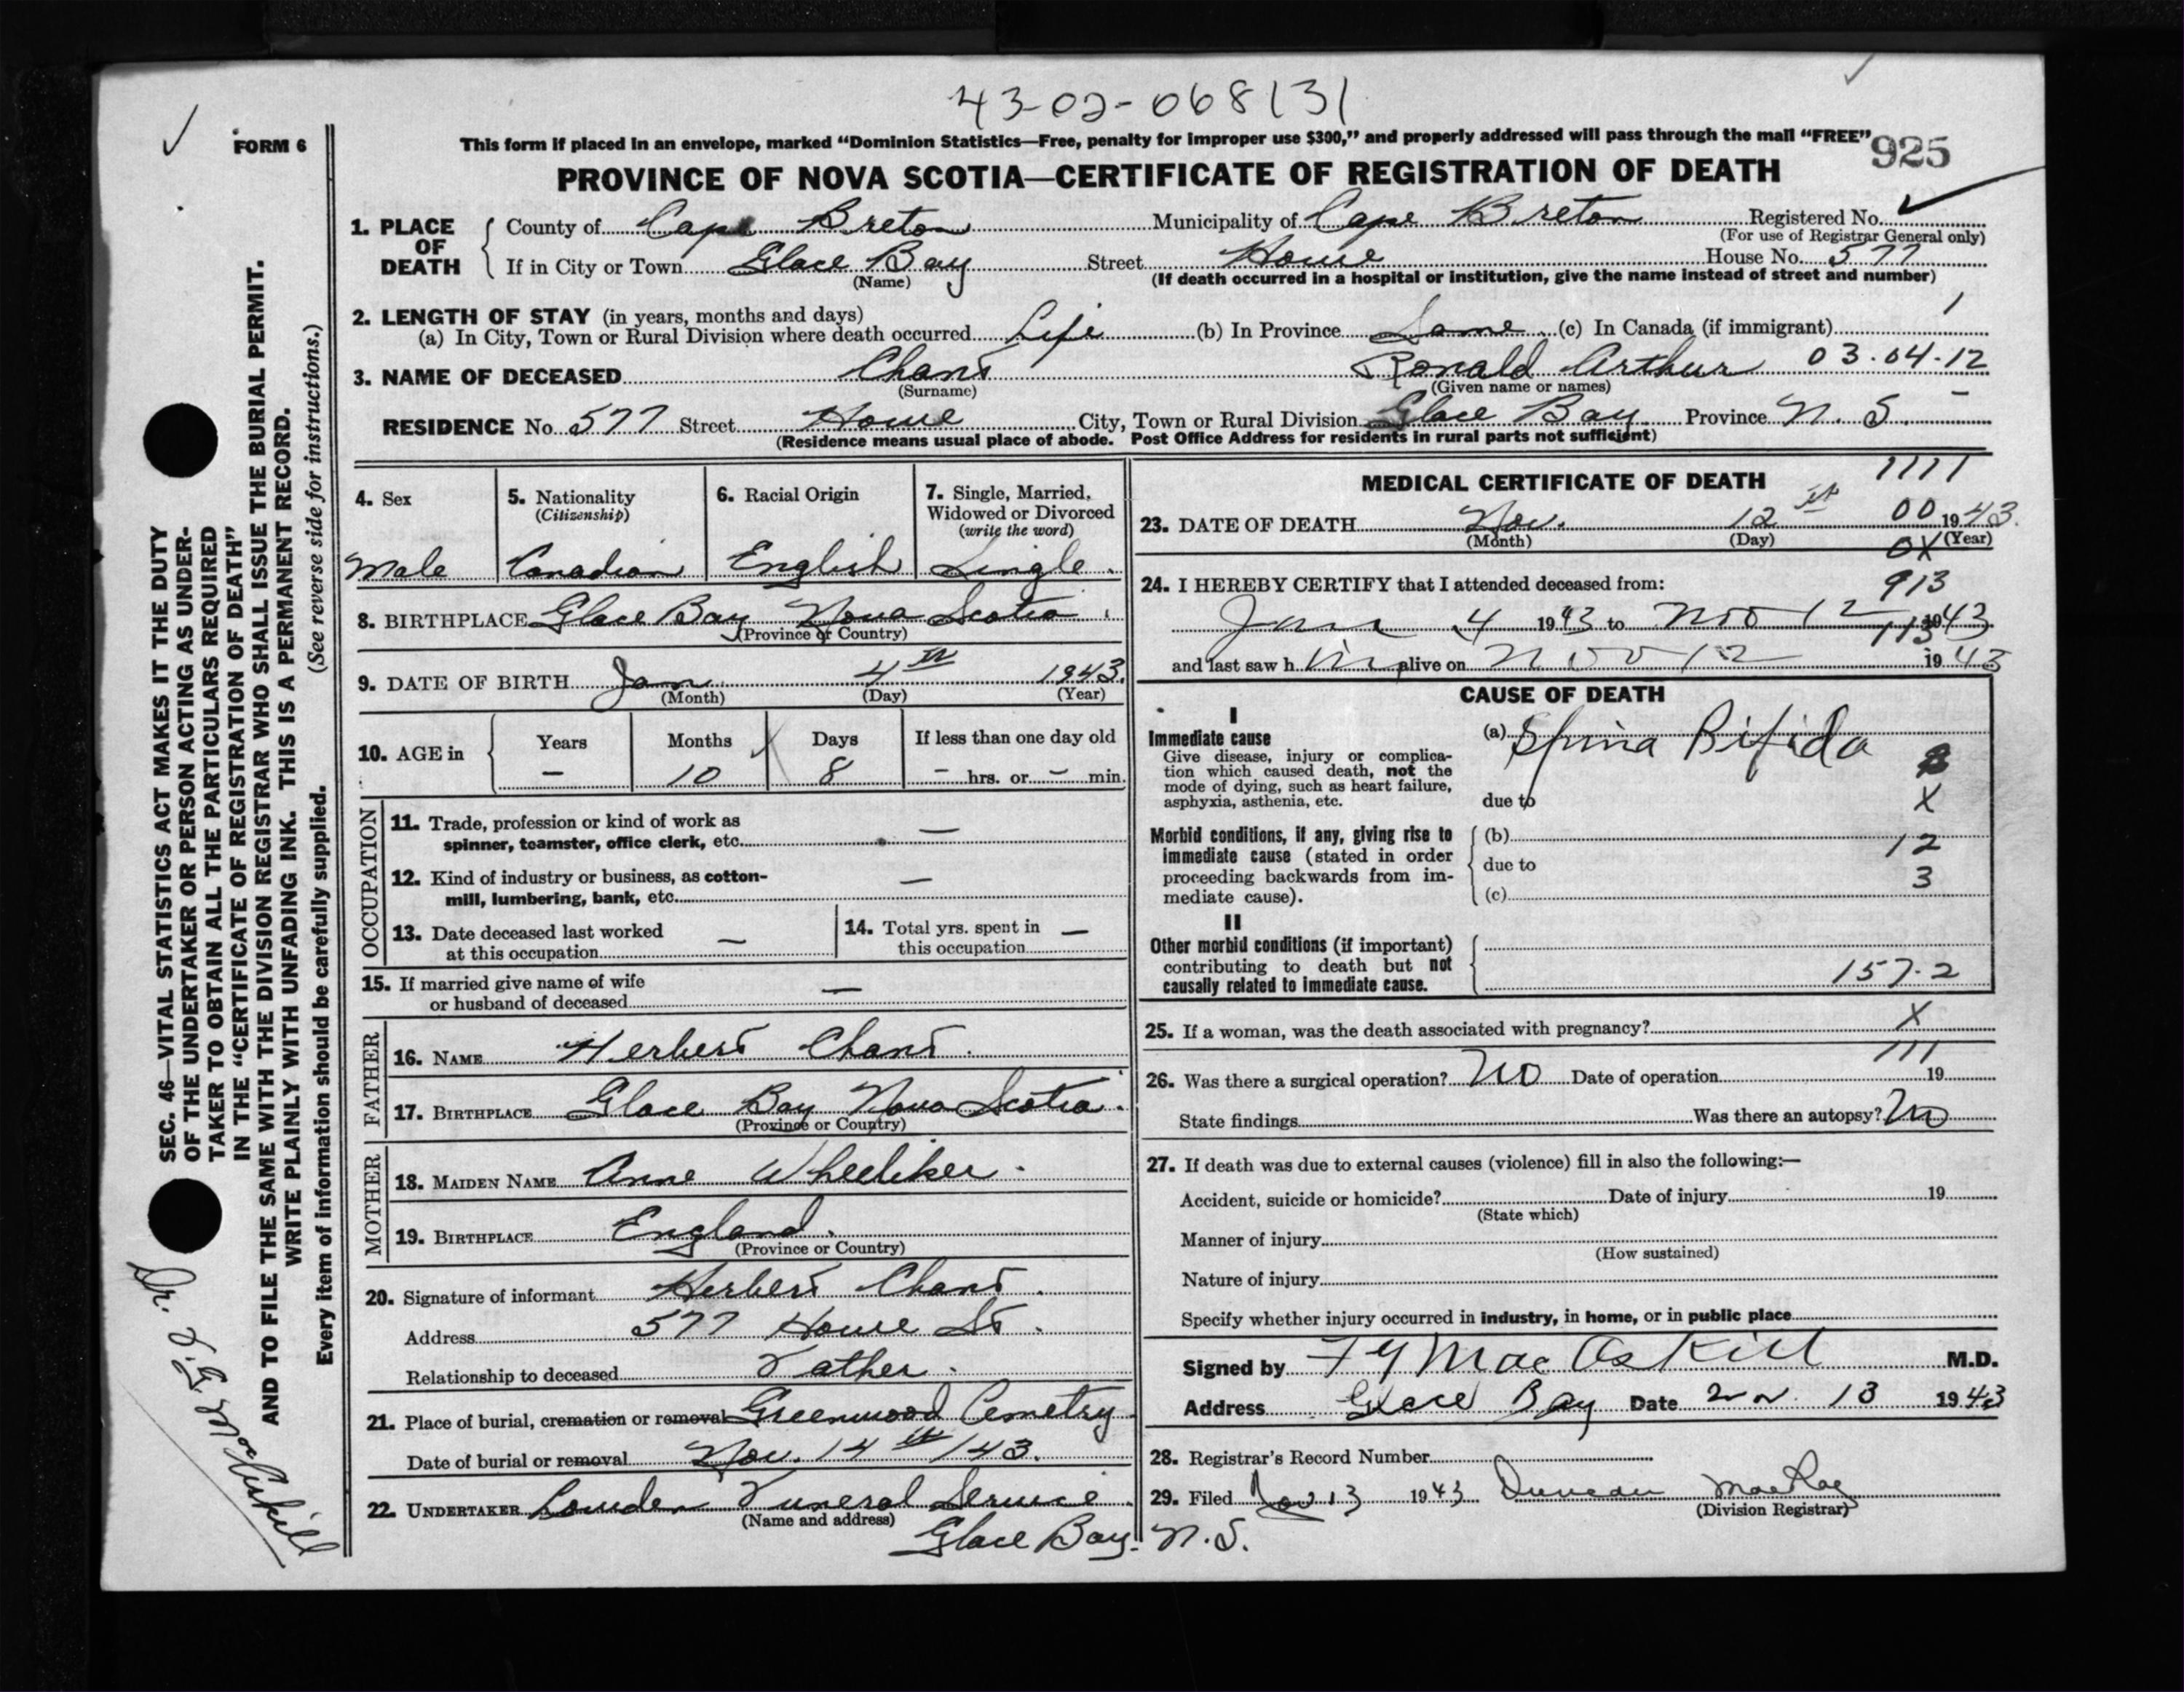 43-02-068131
FORM 6
This form if placed in an envelope, marked "Dominion Statistics—Free, penalty for improper use $300," and properly addressed will pass through the mail "FREE"
925
PROVINCE OF NOVA SCOTIA—CERTIFICATE OF REGISTRATION OF DEATH
1. PLACE OF DEATH County of Cape Breton Municipality of Cape Breton Registered No.
(For use of Registrar General only)
If in City or Town Glace Bay Street Howe House No. 577
(Name) (If death occurred in a hospital or institution, give the name instead of street and number)
2. LENGTH OF STAY (in years, months and days)
(a) In City, Town or Rural Division where death occurred Life (b) In Province Same (c) In Canada (if immigrant) 1
3. NAME OF DECEASED Chant Ronald Arthur 03-04-12
(Surname) (Given name or names)
RESIDENCE No. 577 Street Howe City, Town or Rural Division Glace Bay Province N. S.
(Residence means usual place of abode. Post Office Address for residents in rural parts not sufficient)
4. Sex
Male
5. Nationality
(Citizenship)
Canadian
6. Racial Origin
English
7. Single, Married, Widowed or Divorced
(write the word)
Single.
8. BIRTHPLACE Glace Bay Nova Scotia
(Province or Country)
9. DATE OF BIRTH Jan 4th 1943.
(Month) (Day) (Year)
10. AGE in Years Months Days If less than one day old
— 10 8 — hrs. or — min.
OCCUPATION
11. Trade, profession or kind of work as —
spinner, teamster, office clerk, etc.
12. Kind of industry or business, as cotton- —
mill, lumbering, bank, etc.
13. Date deceased last worked —
at this occupation
14. Total yrs. spent in —
this occupation
15. If married give name of wife —
or husband of deceased
FATHER
16. NAME Herbert Chant.
17. BIRTHPLACE Glace Bay Nova Scotia.
(Province or Country)
MOTHER
18. MAIDEN NAME Anne Wheeliker.
19. BIRTHPLACE England.
(Province or Country)
20. Signature of informant Herbert Chant.
Address 577 Howe St.
Relationship to deceased Father.
21. Place of burial, cremation or removal Greenwood Cemetry
Date of burial or removal Nov. 14th / 43.
22. UNDERTAKER Funeral Service.
(Name and address)
Glace Bay. N.S.
MEDICAL CERTIFICATE OF DEATH 1111
23. DATE OF DEATH Nov. 12th 00 1943.
(Month) (Day) 0X (Year)
24. I HEREBY CERTIFY that I attended deceased from: 913
Jan 4 1943 to Nov 12 1943
113
and last saw him alive on Nov 12 1943
CAUSE OF DEATH
I
Immediate cause
Give disease, injury or complica-
tion which caused death, not the
mode of dying, such as heart failure,
asphyxia, asthenia, etc.
(a) Spina Bifida
due to X
Morbid conditions, if any, giving rise to
immediate cause (stated in order
proceeding backwards from im-
mediate cause).
(b) 12
due to 3
(c)
II
Other morbid conditions (if important)
contributing to death but not
causally related to immediate cause.
157.2
25. If a woman, was the death associated with pregnancy? X
111
26. Was there a surgical operation? No Date of operation 19
State findings Was there an autopsy? No
27. If death was due to external causes (violence) fill in also the following:—
Accident, suicide or homicide? Date of injury 19
(State which)
Manner of injury
(How sustained)
Nature of injury
Specify whether injury occurred in industry, in home, or in public place
Signed by MacAskill M.D.
Address Glace Bay Date Nov. 13 1943
28. Registrar's Record Number
29. Filed Nov 13 1943 Duncan MacRae
(Division Registrar)
SEC. 46—VITAL STATISTICS ACT MAKES IT THE DUTY
OF THE UNDERTAKER OR PERSON ACTING AS UNDER-
TAKER TO OBTAIN ALL THE PARTICULARS REQUIRED
IN THE "CERTIFICATE OF REGISTRATION OF DEATH"
AND TO FILE THE SAME WITH THE DIVISION REGISTRAR WHO SHALL ISSUE THE BURIAL PERMIT.
WRITE PLAINLY WITH UNFADING INK. THIS IS A PERMANENT RECORD.
Every item of information should be carefully supplied. (See reverse side for instructions.)
Dr. MacAskill